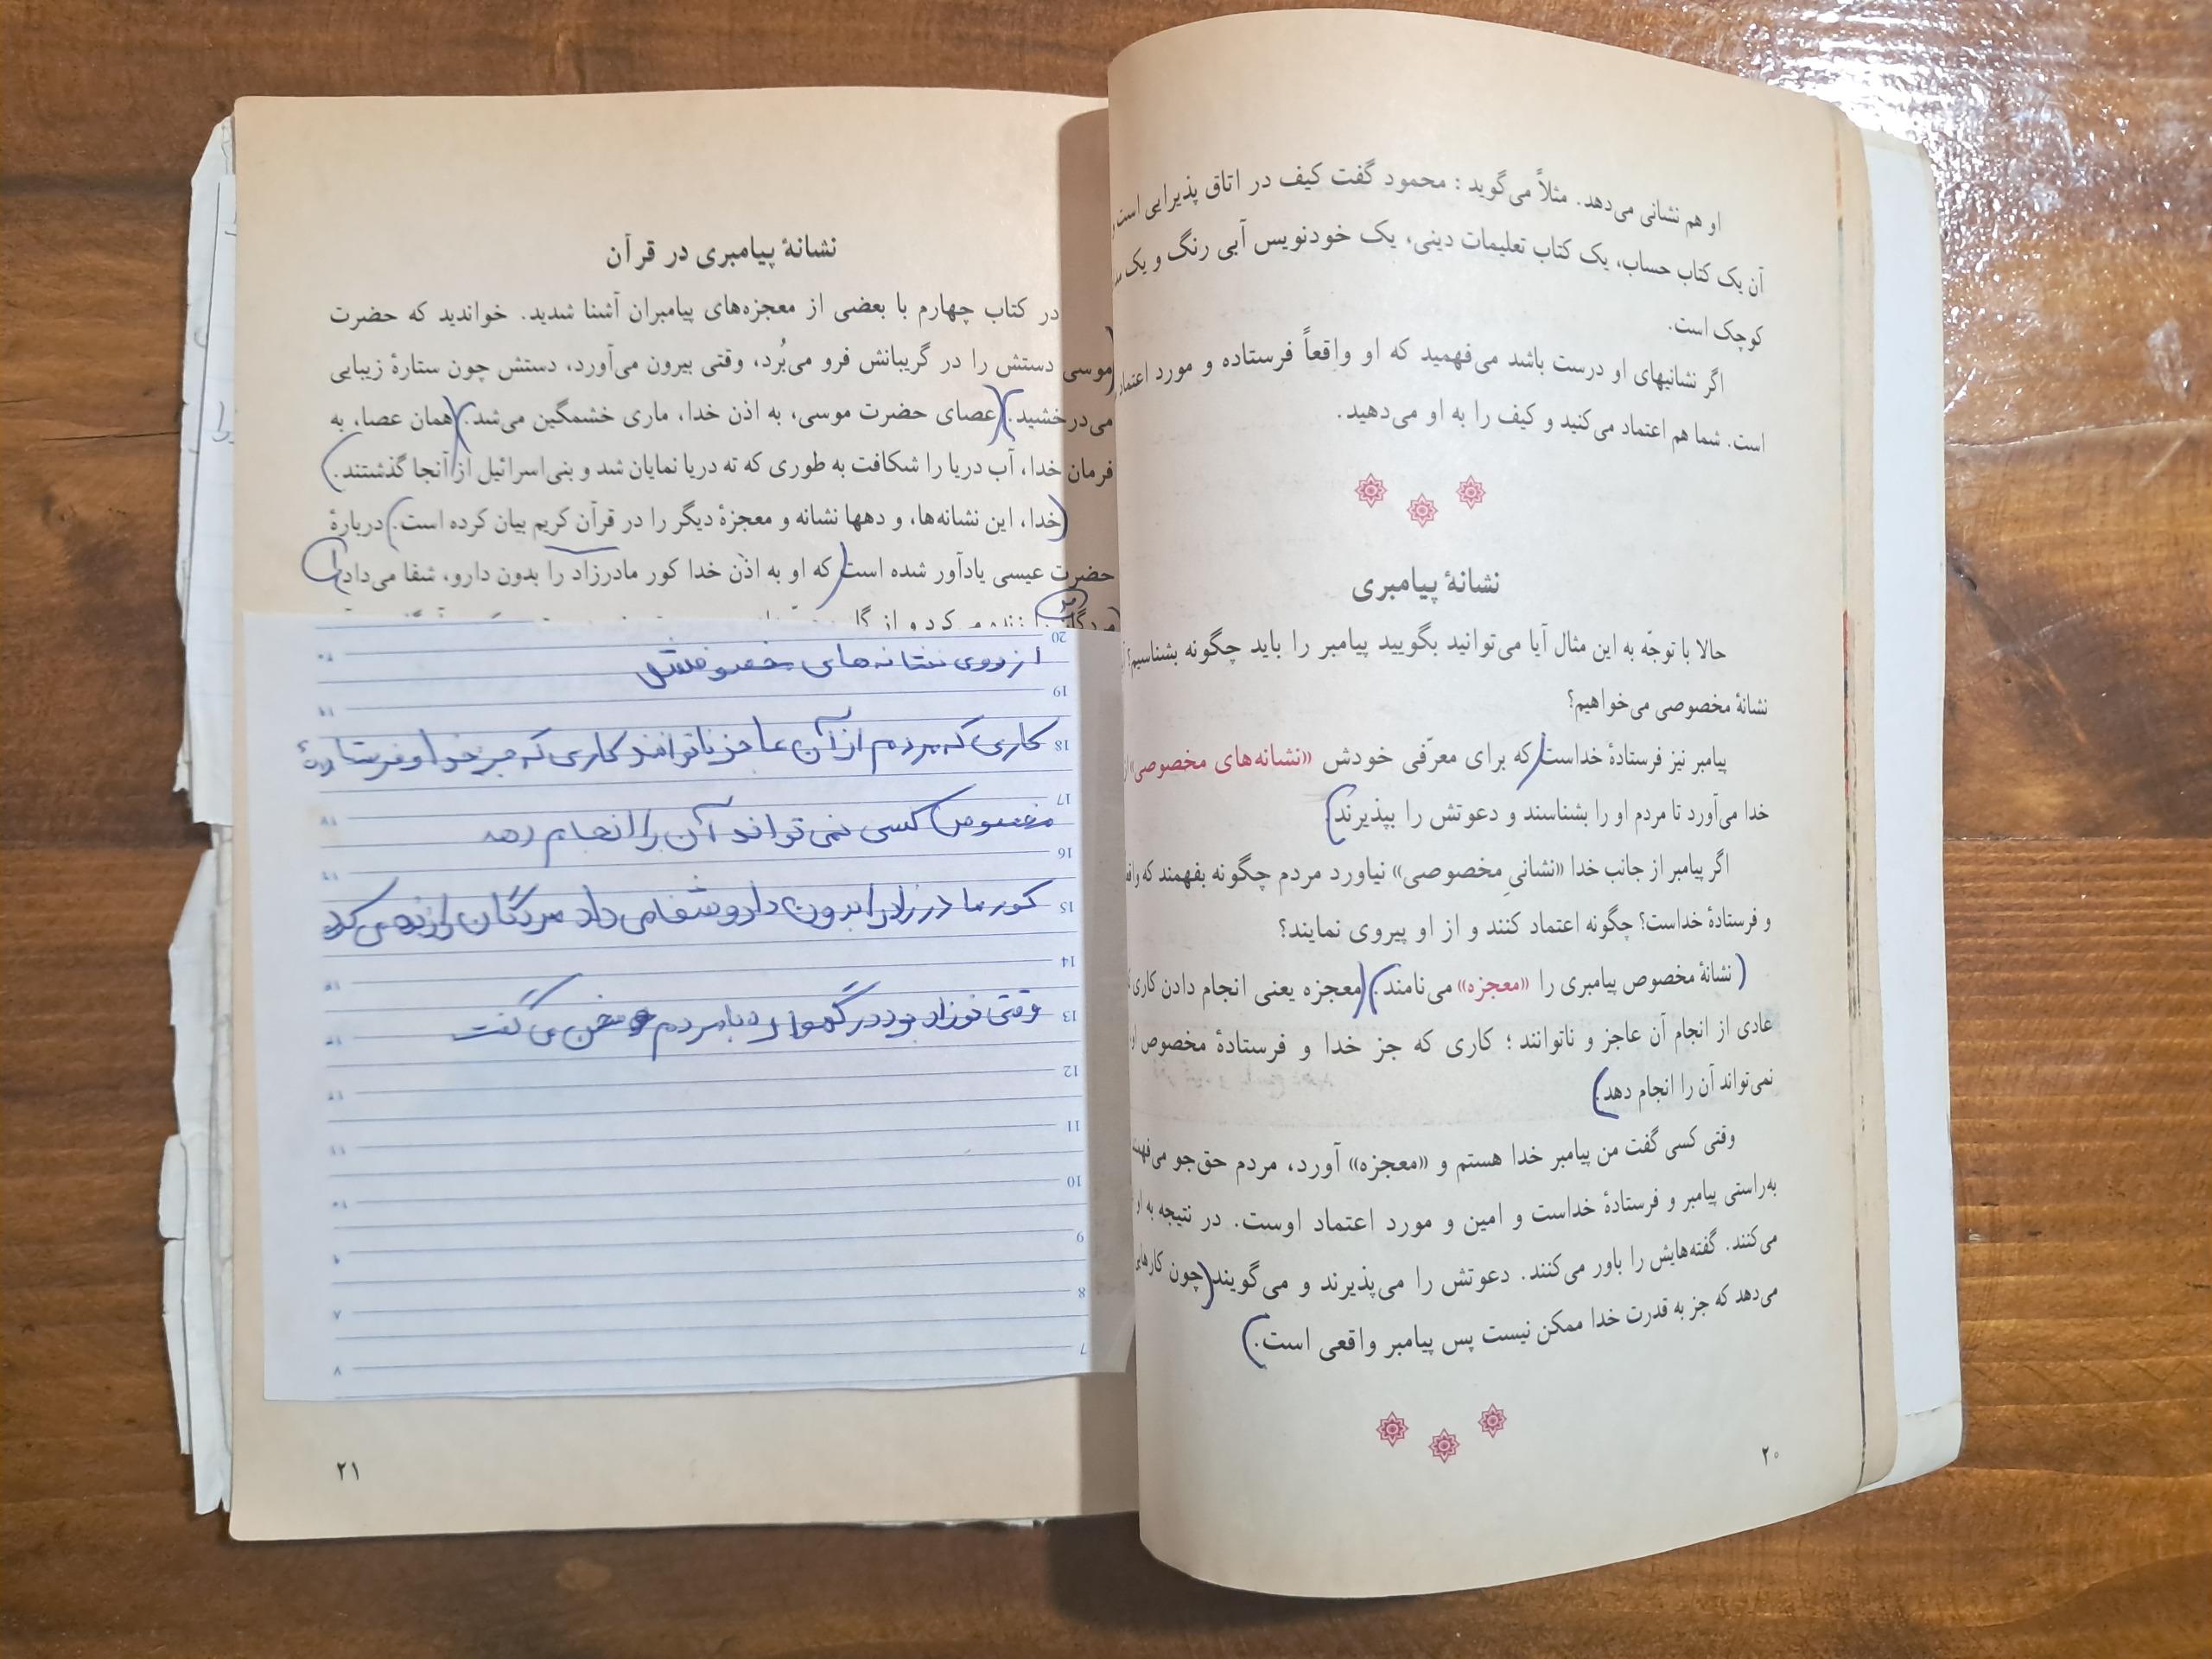 او هم نشانی می‌دهد. مثلاً می‌گوید : محمود گفت کیف در اتاق پذیرایی است و
آن یک کتاب حساب، یک کتاب تعلیمات دینی، یک خودنویس آبی رنگ و یک
کوچک است.
اگر نشانیهای او درست باشد می‌فهمید که او واقعاً فرستاده و مورد اعتماد
است. شما هم اعتماد می‌کنید و کیف را به او می‌دهید.
نشانهٔ پیامبری
حالا با توجّه به این مثال آیا می‌توانید بگویید پیامبر را باید چگونه بشناسیم؟
نشانهٔ مخصوصی می‌خواهیم؟
پیامبر نیز فرستادهٔ خداست که برای معرّفی خودش «نشانه‌های مخصوصی»
خدا می‌آورد تا مردم او را بشناسند و دعوتش را بپذیرند.
اگر پیامبر از جانب خدا «نشانیِ مخصوصی» نیاورد مردم چگونه بفهمند که
و فرستادهٔ خداست؟ چگونه اعتماد کنند و از او پیروی نمایند؟
(نشانهٔ مخصوص پیامبری را «معجزه» می‌نامند.) (معجزه یعنی انجام دادن کاری
عادی از انجام آن عاجز و ناتوانند ؛ کاری که جز خدا و فرستادهٔ مخصوص
نمی‌تواند آن را انجام دهد.)
وقتی کسی گفت من پیامبر خدا هستم و «معجزه» آورد، مردم حق‌جو
به‌راستی پیامبر و فرستادهٔ خداست و امین و مورد اعتماد اوست. در نتیجه به او
می‌کنند. گفته‌هایش را باور می‌کنند. دعوتش را می‌پذیرند و می‌گویند (چون
می‌دهد که جز به قدرت خدا ممکن نیست پس پیامبر واقعی است.)
۲۰
نشانهٔ پیامبری در قرآن
در کتاب چهارم با بعضی از معجزه‌های پیامبران آشنا شدید. خواندید که حضرت
موسی دستش را در گریبانش فرو می‌بُرد، وقتی بیرون می‌آورد، دستش چون ستارهٔ زیبایی
می‌درخشید.) (عصای حضرت موسی، به اذن خدا، ماری خشمگین می‌شد.) (همان عصا، به
فرمان خدا، آب دریا را شکافت به طوری که ته دریا نمایان شد و بنی‌اسرائیل از آنجا گذشتند.)
(خدا، این نشانه‌ها، و دهها نشانه و معجزهٔ دیگر را در قرآن کریم بیان کرده است.) دربارهٔ
حضرت عیسی یادآور شده است (که او به اذن خدا کور مادرزاد را بدون دارو، شفا می‌داد)
20
از روی نشانه‌های مخصوصش
19
18 کاری که مردم از آن عاجز ناتوانند کاری که جز خدا و فرستاده
17
مخصوص کسی نمی تواند آن را انجام دهد
16
15 کور مادرزاد را بدون دارو شفا می داد مردگان را زنده می کرد
14
13 وقتی نوزاد بود در گهواره با مردم سخن می گفت
12
11
10
9
8
7
۲۱